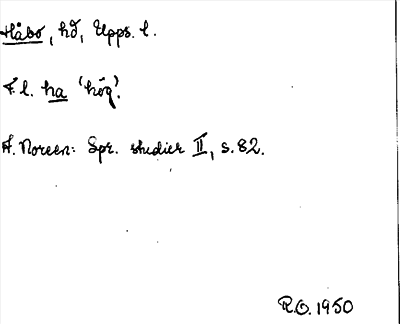 Håbo, hd, Upps. l.
F l. ha 'hög'.
A. Noreen: Spr. studier II, s. 82.
R.O. 1950